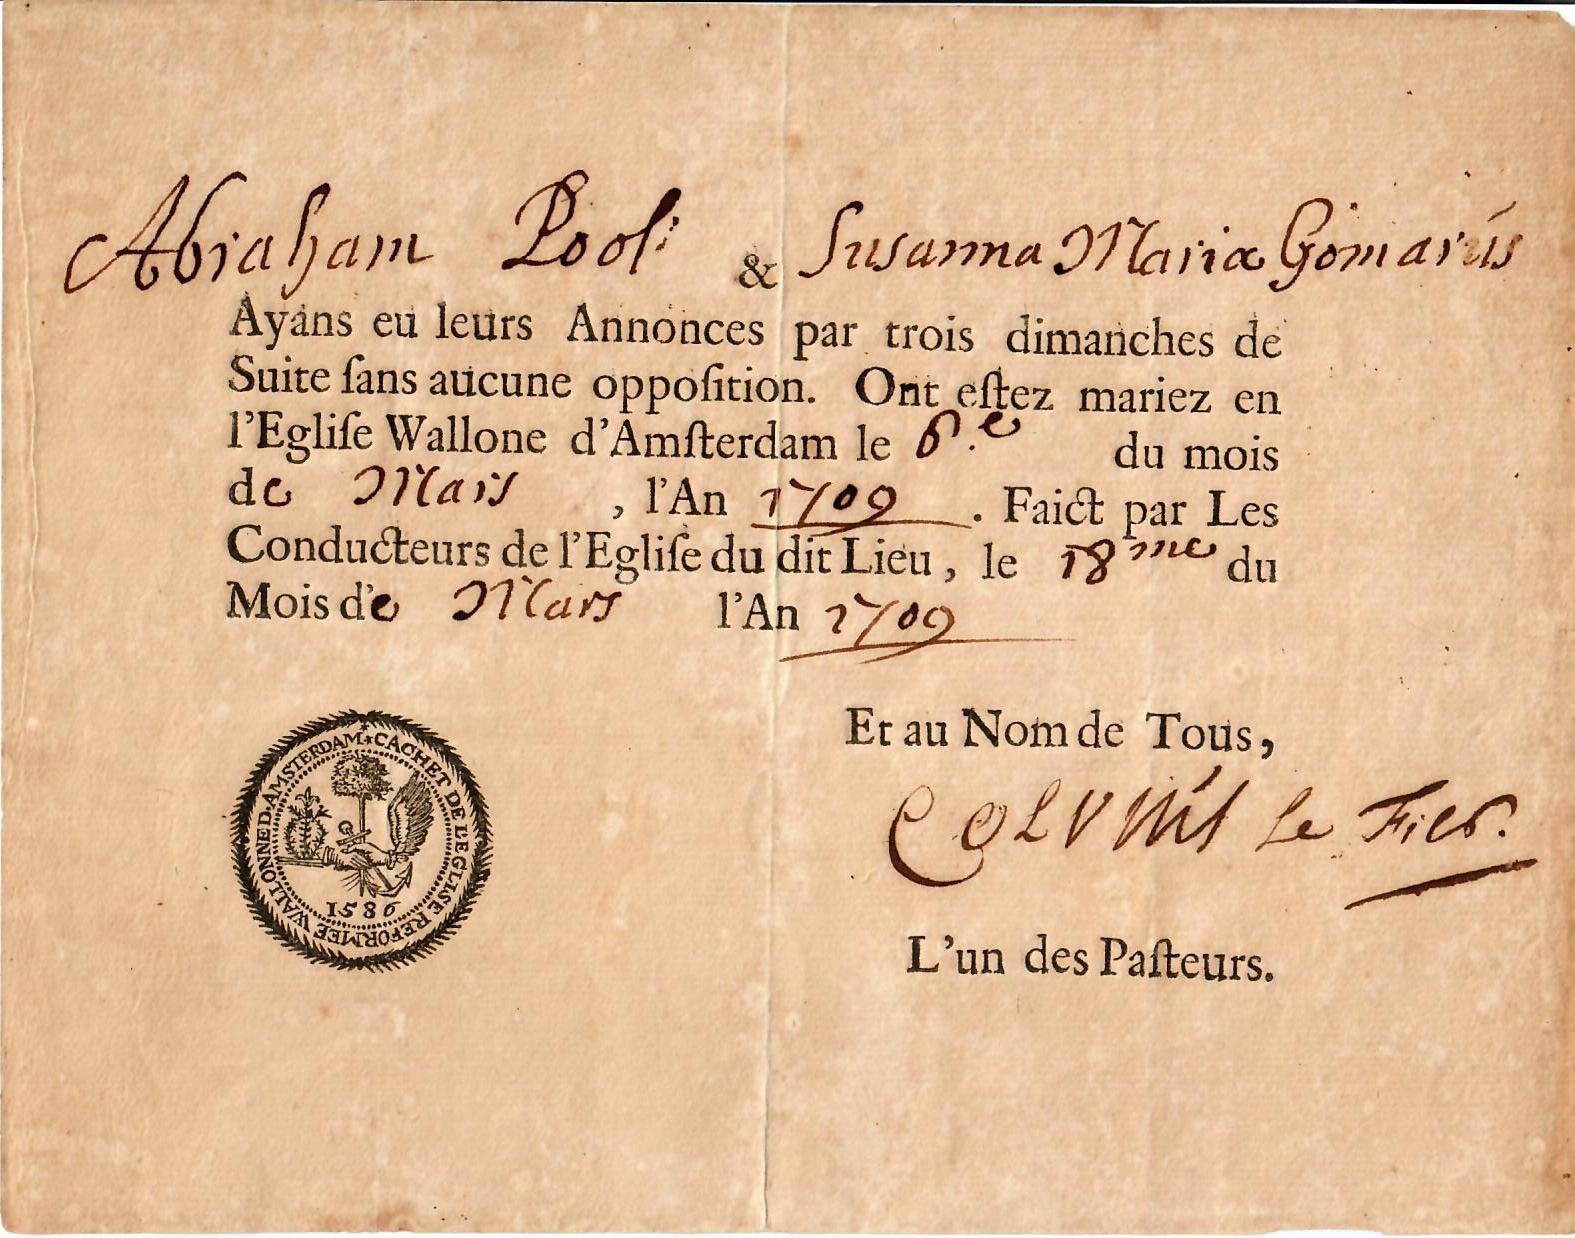 Abraham Pool: & Susanna Maria Gomarús
Ayans eu leurs Annonces par trois dimanches de
Suite ſans aucune oppoſition. Ont eſtez mariez en
l'Egliſe Wallone d'Amſterdam le 6.e du mois
de Mars, l'An 1709. Faict par Les
Conducteurs de l'Egliſe du dit Lieu, le 18me du
Mois de Mars l'An 1709
Et au Nom de Tous,
COLVIUS le Fils.
L'un des Paſteurs.
CACHET DE L'EGLISE REFORMEE WALLONNE D'AMSTERDAM
1586